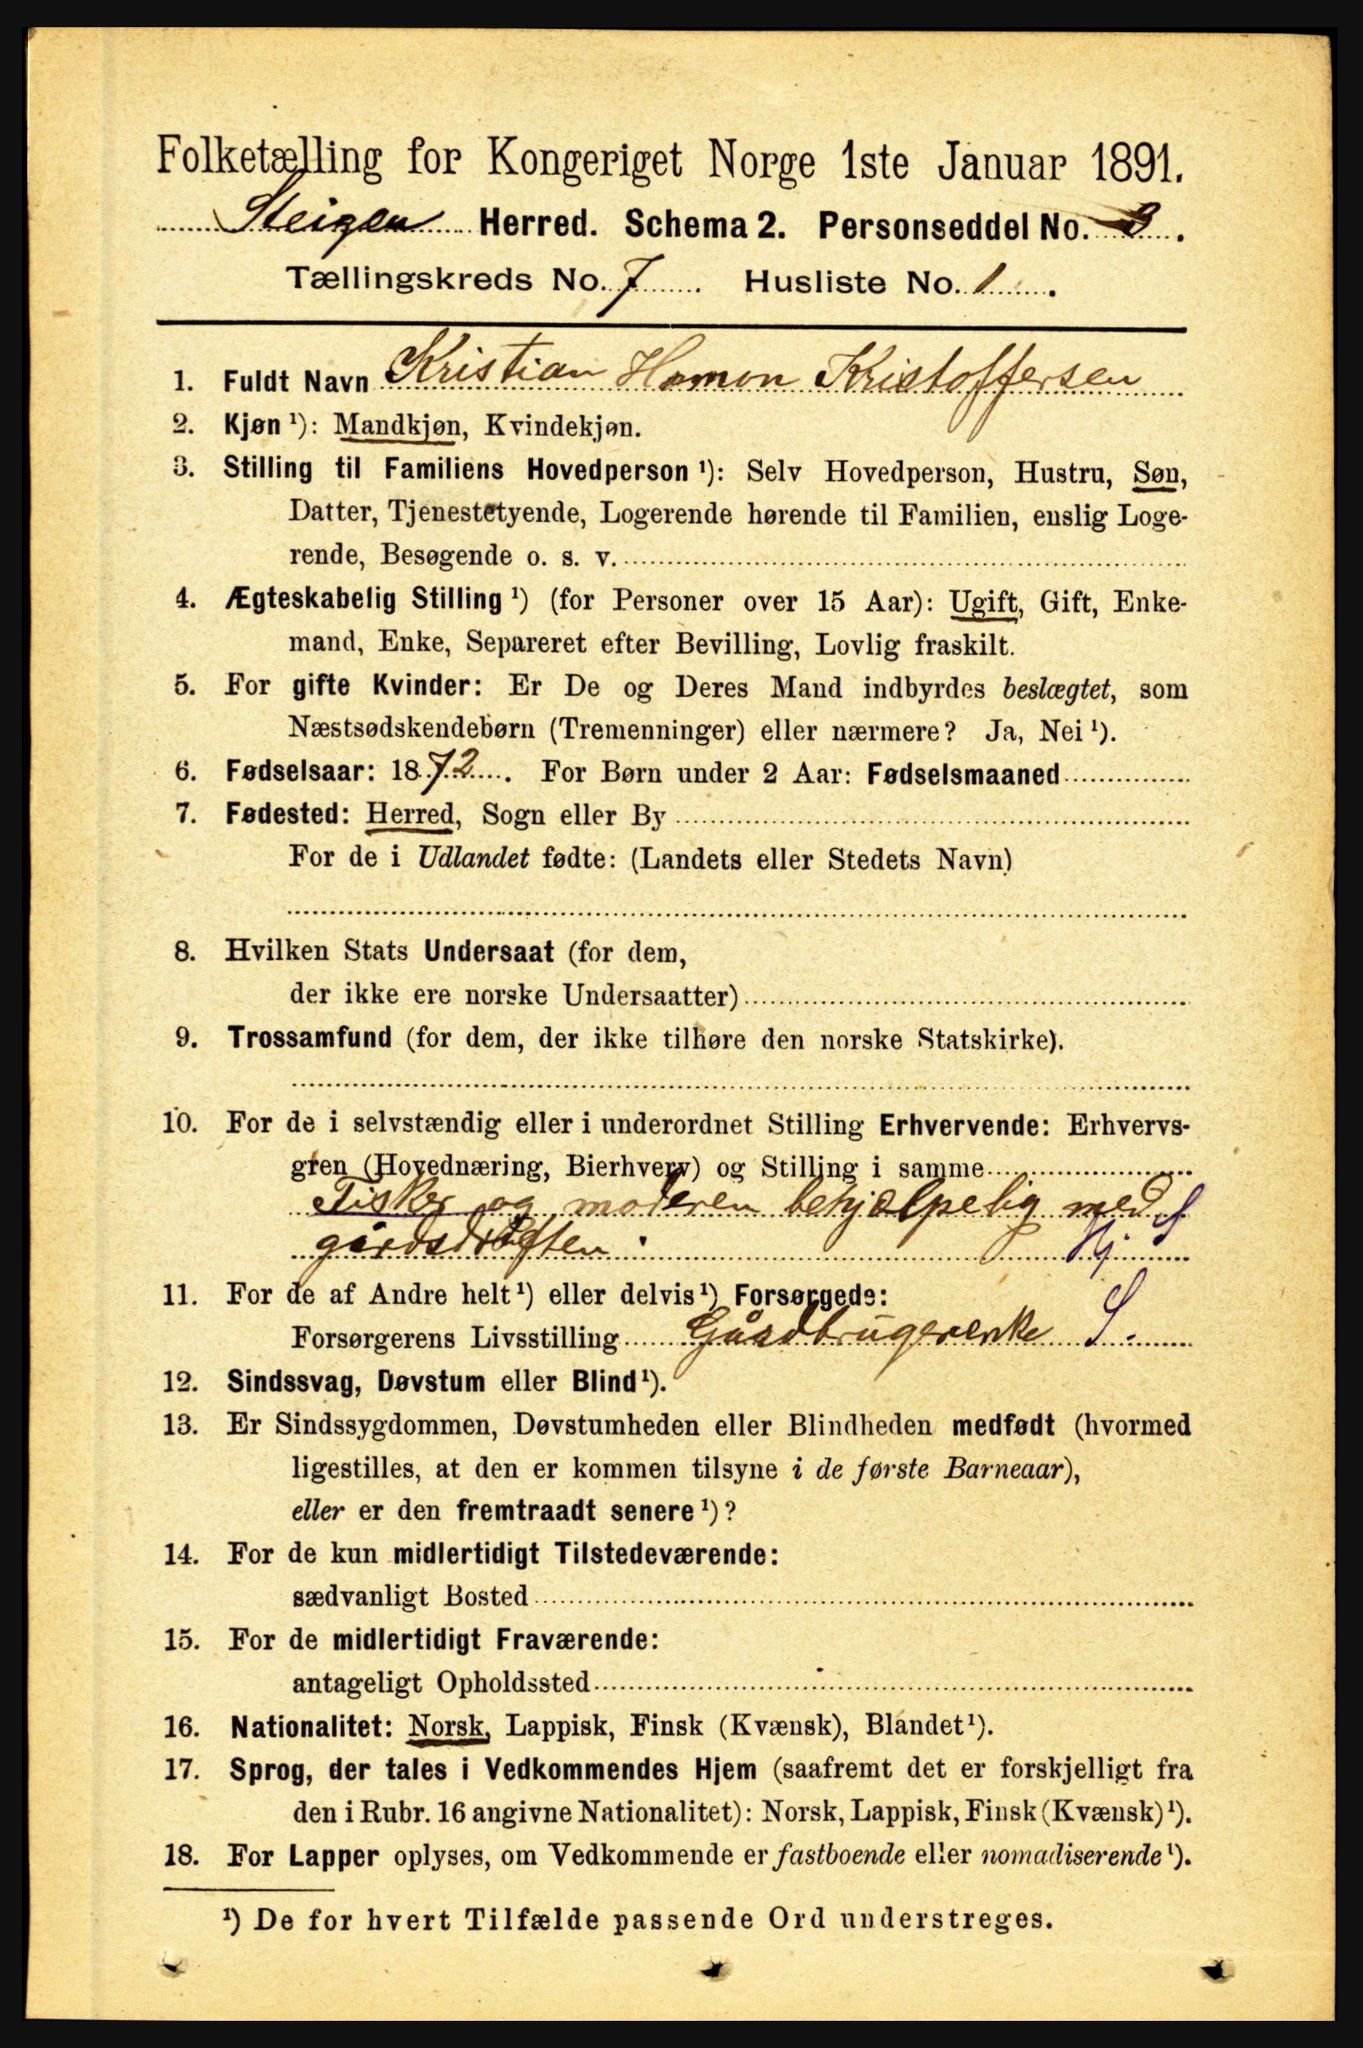 Folketælling for Kongeriget Norge 1ste Januar 1891.
Steigen Herred. Schema 2. Personseddel No. 3.
Tællingskreds No. 7. Husliste No. 1.
1. Fuldt Navn Kristian Hamon Kristoffersen
2. Kjøn ¹): Mandkjøn, Kvindekjøn.
3. Stilling til Familiens Hovedperson ¹): Selv Hovedperson, Hustru, Søn,
Datter, Tjenestetyende, Logerende hørende til Familien, enslig Loge-
rende, Besøgende o. s. v.
4. Ægteskabelig Stilling ¹) (for Personer over 15 Aar): Ugift, Gift, Enke-
mand, Enke, Separeret efter Bevilling, Lovlig fraskilt.
5. For gifte Kvinder: Er De og Deres Mand indbyrdes beslægtet, som
Næstsødskendebørn (Tremenninger) eller nærmere? Ja, Nei ¹).
6. Fødselsaar: 1872. For Børn under 2 Aar: Fødselsmaaned
7. Fødested: Herred, Sogn eller By
For de i Udlandet fødte: (Landets eller Stedets Navn)
8. Hvilken Stats Undersaat (for dem,
der ikke ere norske Undersaatter)
9. Trossamfund (for dem, der ikke tilhøre den norske Statskirke).
10. For de i selvstændig eller i underordnet Stilling Erhvervende: Erhvervs-
gren (Hovednæring, Bierhverv) og Stilling i samme
Fisker og moderen behjælpelig med S
gårdsdriften. Hj
11. For de af Andre helt ¹) eller delvis ¹) Forsørgede:
Forsørgerens Livsstilling Gårdbrugerenke S.
12. Sindssvag, Døvstum eller Blind ¹).
13. Er Sindssygdommen, Døvstumheden eller Blindheden medfødt (hvormed
ligestilles, at den er kommen tilsyne i de første Barneaar),
eller er den fremtraadt senere ¹)?
14. For de kun midlertidigt Tilstedeværende:
sædvanligt Bosted
15. For de midlertidigt Fraværende:
antageligt Opholdssted
16. Nationalitet: Norsk, Lappisk, Finsk (Kvænsk), Blandet ¹).
17. Sprog, der tales i Vedkommendes Hjem (saafremt det er forskjelligt fra
den i Rubr. 16 angivne Nationalitet): Norsk, Lappisk, Finsk (Kvænsk) ¹).
18. For Lapper oplyses, om Vedkommende er fastboende eller nomadiserende ¹).
¹) De for hvert Tilfælde passende Ord understreges.